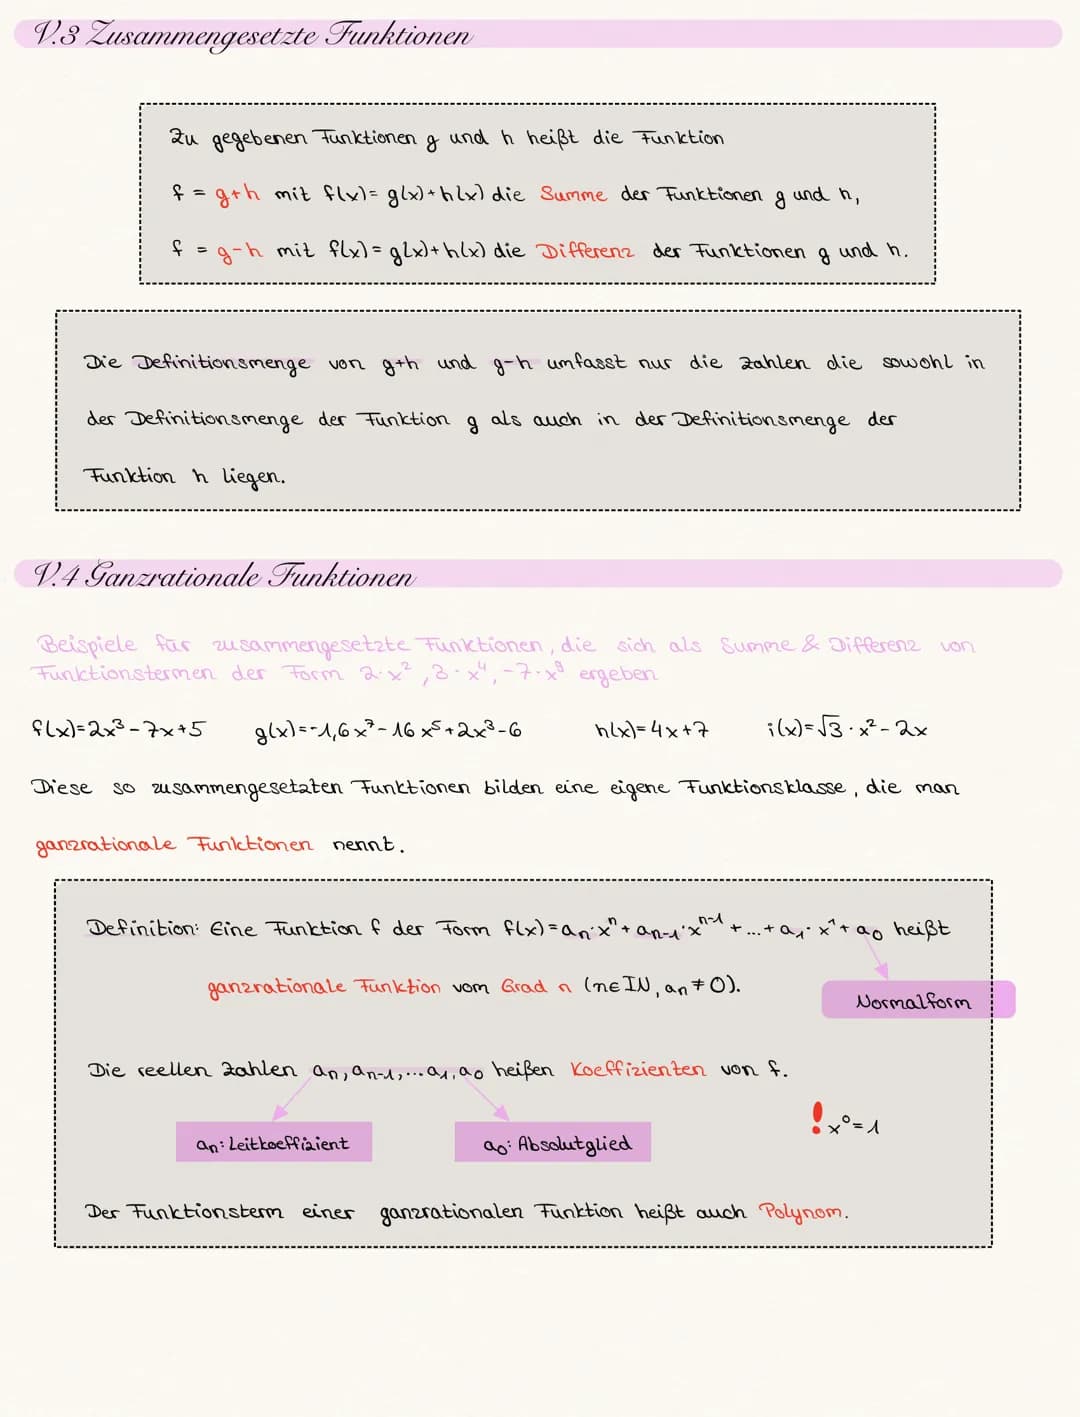 V.3 Zusammengesetzte Funktionen
Zu gegebenen Funktionen g und h heißt die Funktion
f = g+h mit f(x)= g(x)+h(x) die Summe der Funktionen g und h,
f = g-h mit f(x)= g(x)+h(x) die Differenz der Funktionen g und h.
Die Definitionsmenge von g+h und g-h umfasst nur die Zahlen die sowohl in
der Definitionsmenge der Funktion g als auch in der Definitionsmenge der
Funktion h liegen.
V.4 Ganzrationale Funktionen
Beispiele für zusammengesetzte Funktionen, die sich als Summe & Differenz von
Funktionstermen der Form 2·x², 3·x⁴, -7·x⁹ ergeben
f(x)=2x³-7x+5 g(x)=-1,6x⁷-16x⁵+2x³-6 h(x)=4x+7 i(x)=√3·x²-2x
Diese so zusammengesetzten Funktionen bilden eine eigene Funktionsklasse, die man
ganzrationale Funktionen nennt.
Definition: Eine Funktion f der Form f(x)=aₙ·xⁿ+aₙ₋₁·xⁿ⁻¹+...+a₁·x¹+a₀ heißt
ganzrationale Funktion vom Grad n (n∈ℕ, aₙ≠0).
Normalform
Die reellen Zahlen aₙ, aₙ₋₁,...a₁, a₀ heißen Koeffizienten von f.
! x⁰=1
aₙ: Leitkoeffizient a₀: Absolutglied
Der Funktionsterm einer ganzrationalen Funktion heißt auch Polynom.